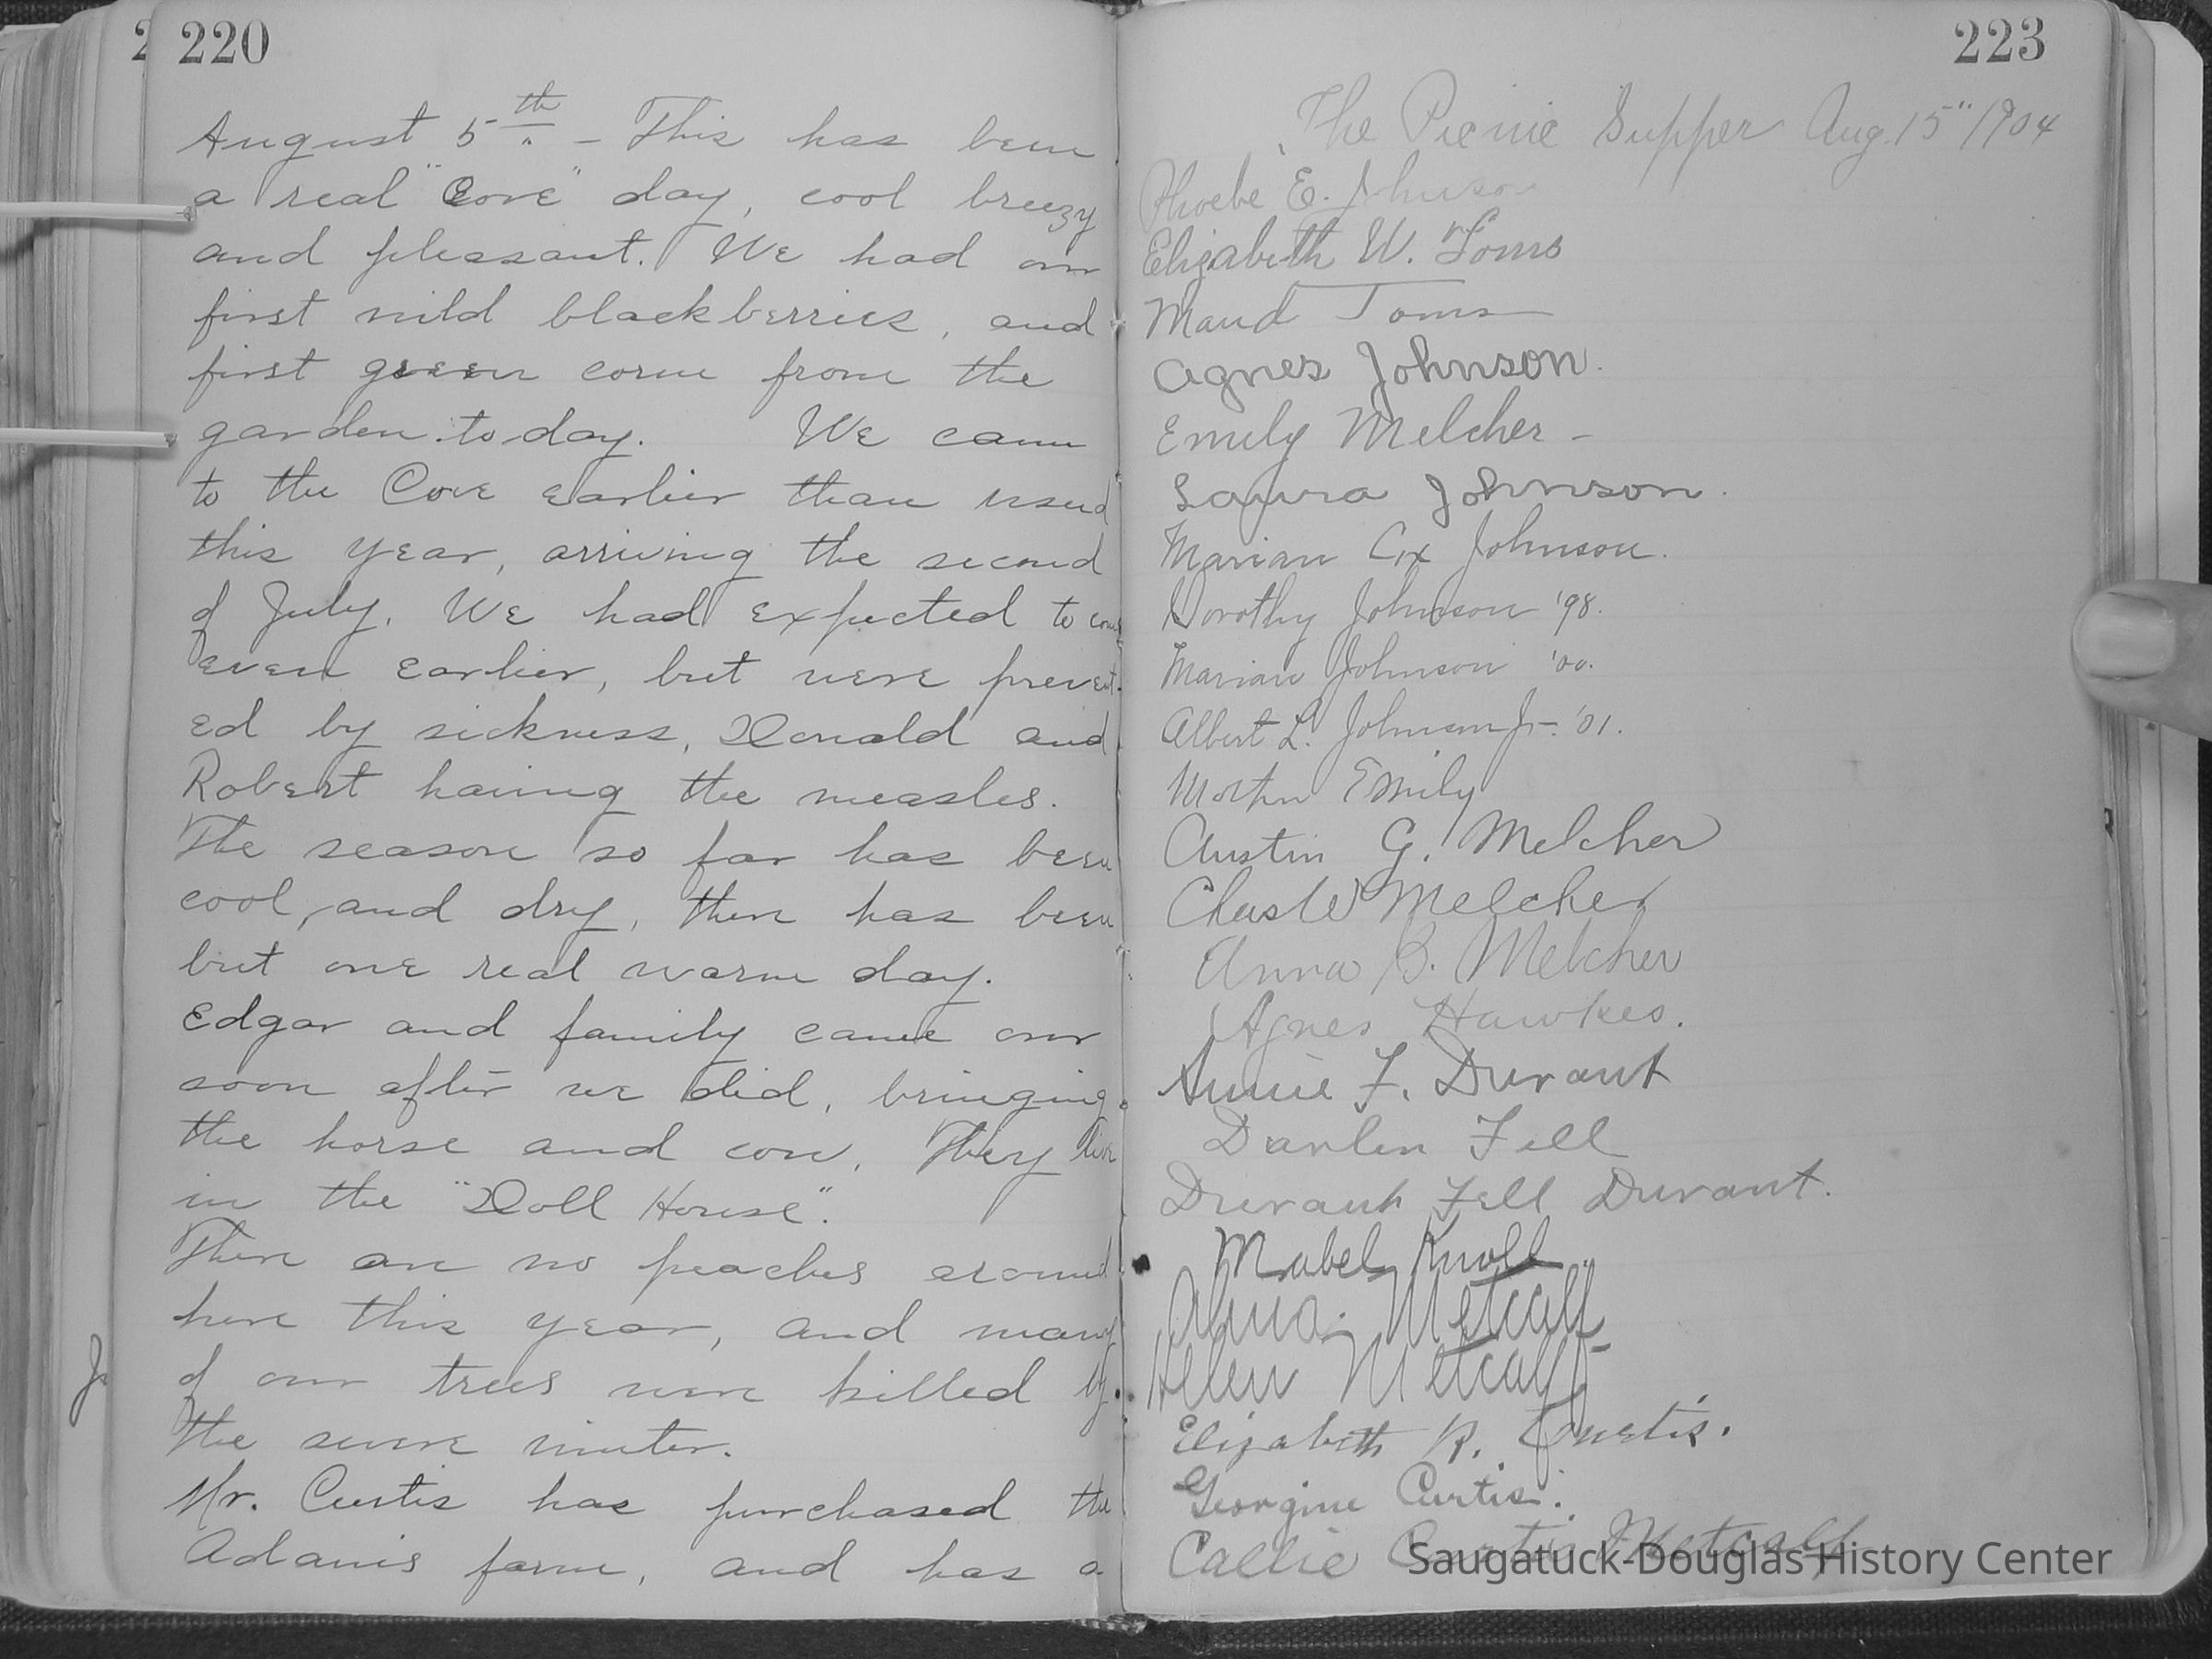 2 220
August 5th. - This has been
a real "Cove" day, cool breezy
and pleasant. We had our
first wild blackberries, and
first green corn from the
garden to-day. We came
to the Cove earlier than usual
this year, arriving the second
of July. We had expected to come
even earlier, but were prevent-
ed by sickness, Donald and
Robert having the measles.
The season so far has been
cool, and dry, there has been
but one real warm day.
Edgar and family came over
soon after we did, bringing
the horse and cow. They live
in the "Doll House".
There are no peaches around
here this year, and many
of our trees were killed by
the severe winter.
Mr. Curtis has purchased the
Adams farm, and has a
223
The Picnic Supper Aug. 15" 1904
Phoebe E. Johnson
Elizabeth W. Toms
Maud Toms
Agnes Johnson.
Emily Melcher -
Laura Johnson.
Marian Cox Johnson.
Dorothy Johnson '98.
Marian Johnson '00.
Albert L. Johnson Jr. '01.
Emily
Austin G. Melcher
Melcher
Anna B. Melcher
Agnes Hawkes.
Annie F. Durant
Fell
Fell Durant.
Mabel Knoll
Metcalf
Helen Metcalf
Elizabeth R. Curtis.
Georgine Curtis.
Callie Curtis Metcalf
Saugatuck-Douglas History Center